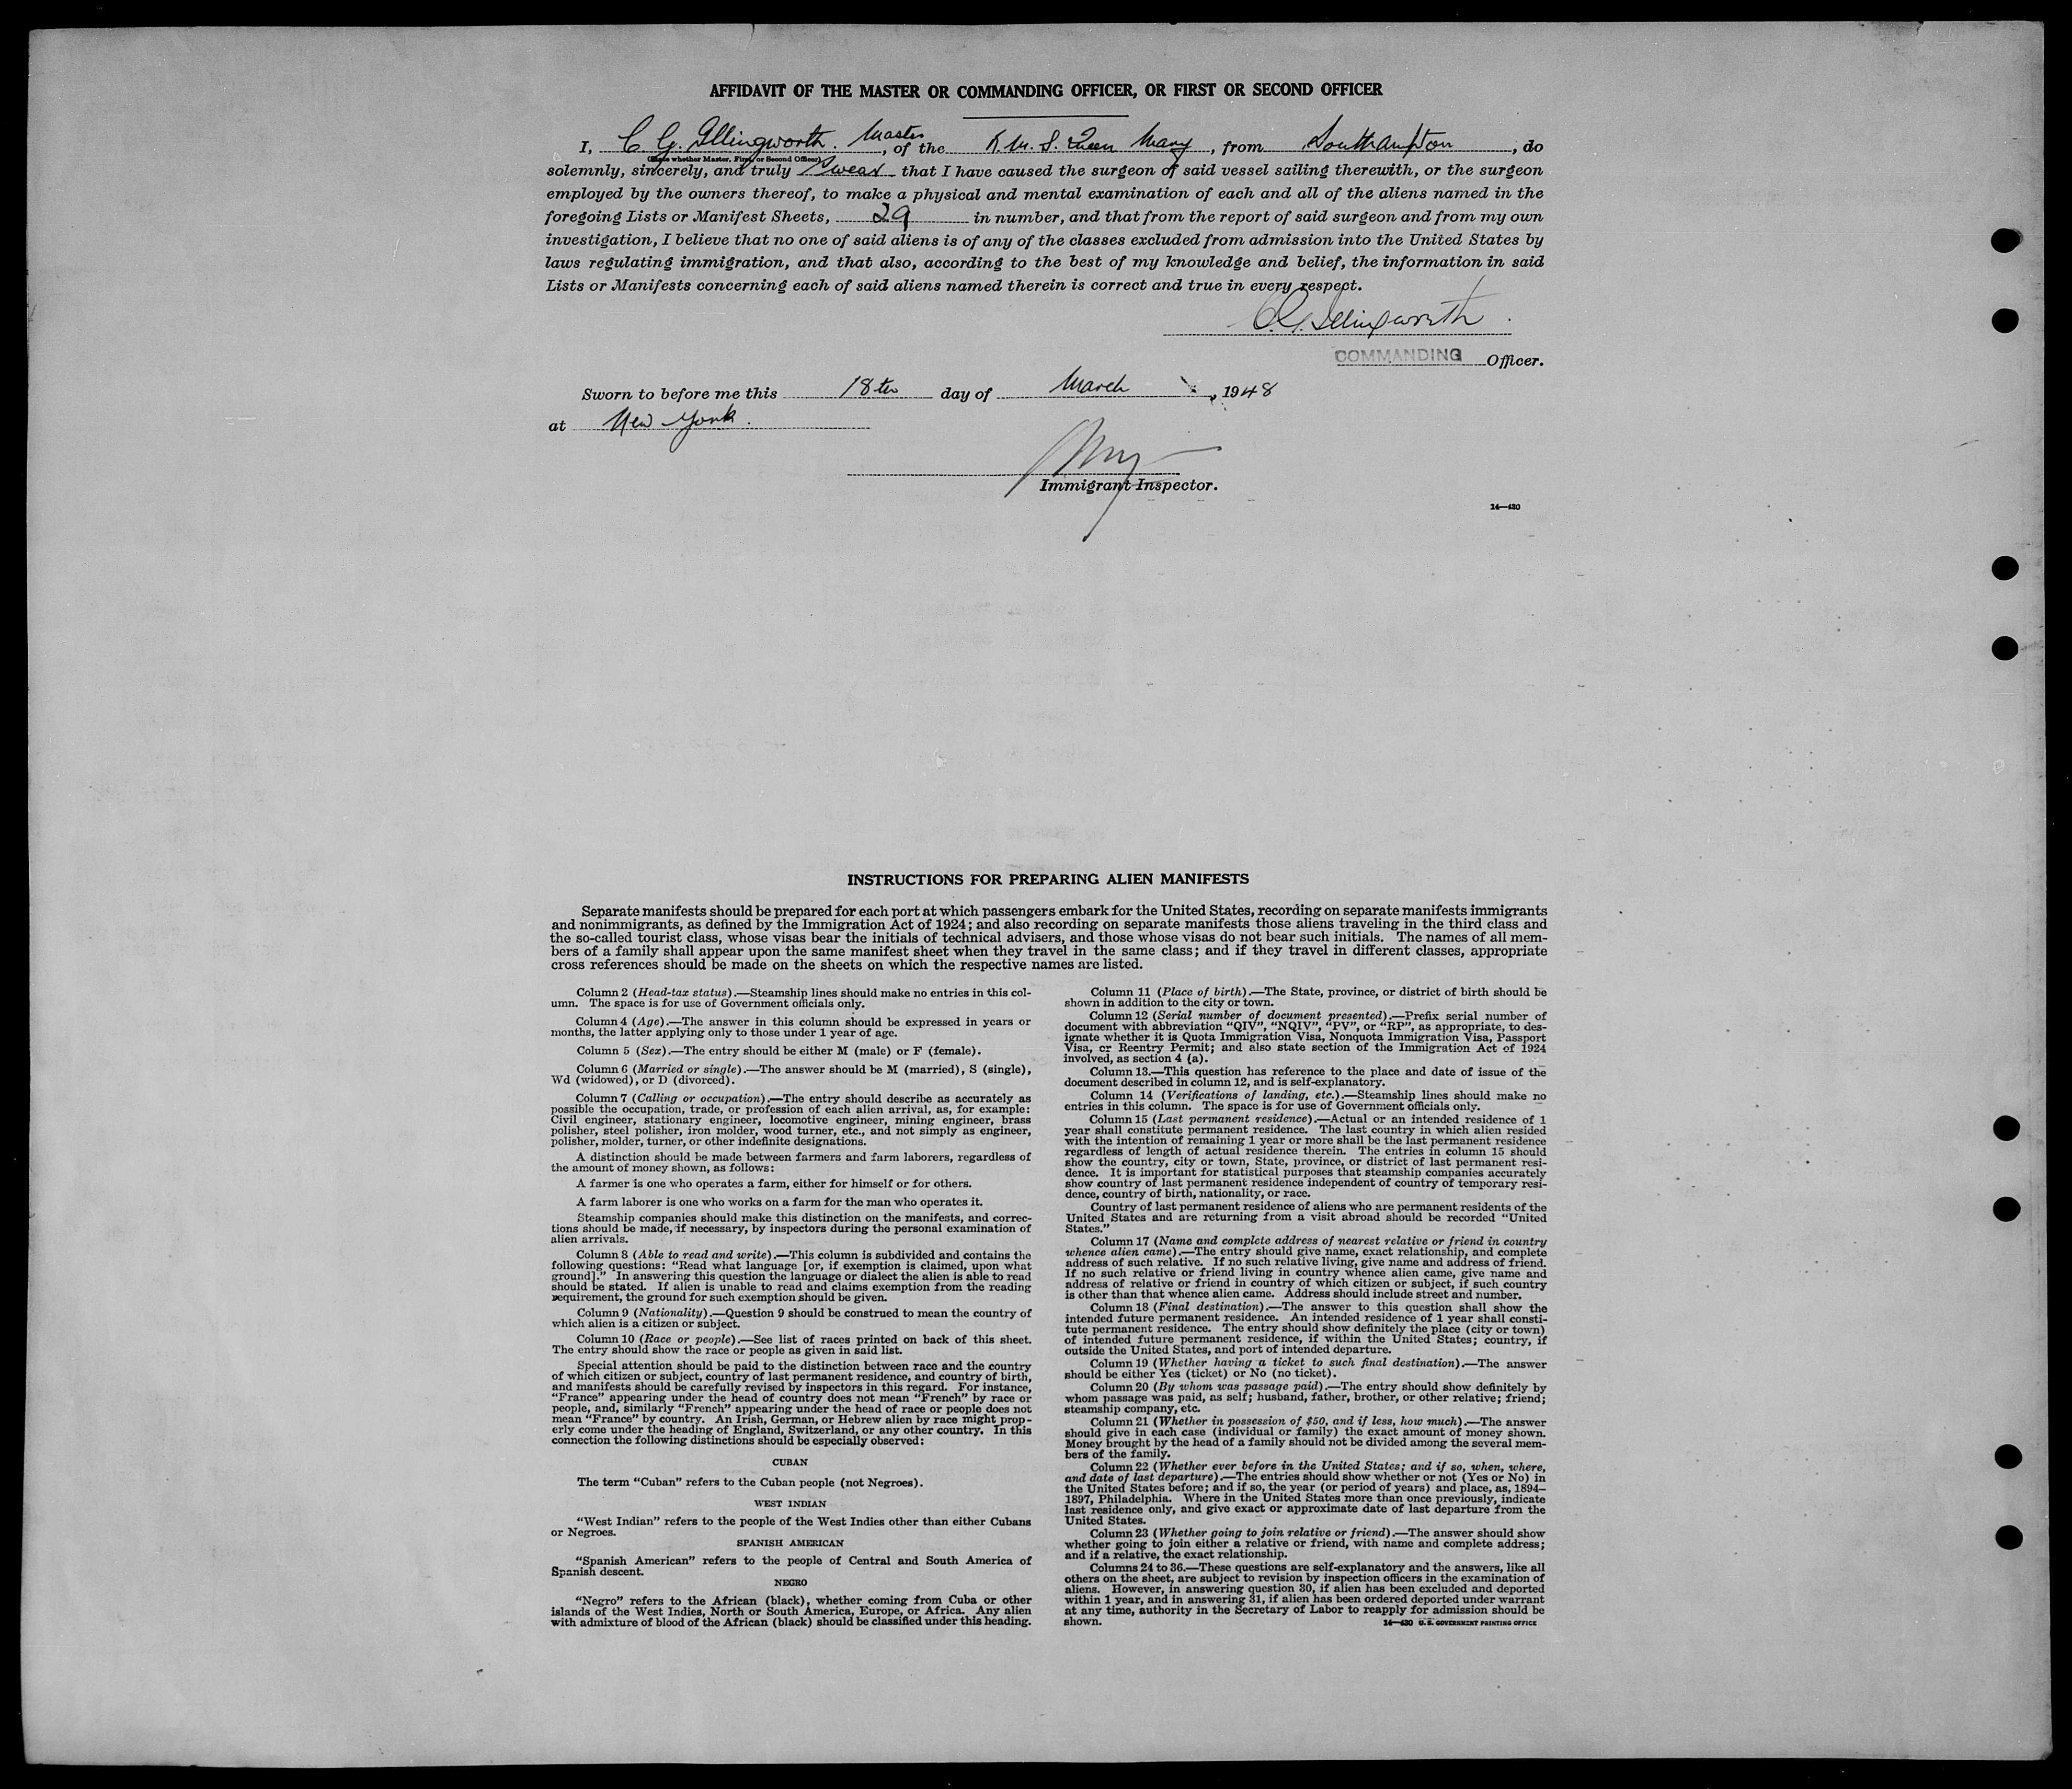 AFFIDAVIT OF THE MASTER OR COMMANDING OFFICER, OR FIRST OR SECOND OFFICER
I, C. G. Illingworth. Master, of the R.M.S. Queen Mary, from Southampton, do
(State whether Master, First, or Second Officer)
solemnly, sincerely, and truly swear that I have caused the surgeon of said vessel sailing therewith, or the surgeon
employed by the owners thereof, to make a physical and mental examination of each and all of the aliens named in the
foregoing Lists or Manifest Sheets, 29 in number, and that from the report of said surgeon and from my own
investigation, I believe that no one of said aliens is of any of the classes excluded from admission into the United States by
laws regulating immigration, and that also, according to the best of my knowledge and belief, the information in said
Lists or Manifests concerning each of said aliens named therein is correct and true in every respect.
C.G. Illingworth.
COMMANDING Officer.
Sworn to before me this 18th day of March, 1948
at New York.
Immigrant Inspector.
14—430
INSTRUCTIONS FOR PREPARING ALIEN MANIFESTS
Separate manifests should be prepared for each port at which passengers embark for the United States, recording on separate manifests immigrants
and nonimmigrants, as defined by the Immigration Act of 1924; and also recording on separate manifests those aliens traveling in the third class and
the so-called tourist class, whose visas bear the initials of technical advisers, and those whose visas do not bear such initials. The names of all mem-
bers of a family shall appear upon the same manifest sheet when they travel in the same class; and if they travel in different classes, appropriate
cross references should be made on the sheets on which the respective names are listed.
Column 2 (Head-tax status).—Steamship lines should make no entries in this col-
umn. The space is for use of Government officials only.
Column 4 (Age).—The answer in this column should be expressed in years or
months, the latter applying only to those under 1 year of age.
Column 5 (Sex).—The entry should be either M (male) or F (female).
Column 6 (Married or single).—The answer should be M (married), S (single),
Wd (widowed), or D (divorced).
Column 7 (Calling or occupation).—The entry should describe as accurately as
possible the occupation, trade, or profession of each alien arrival, as, for example:
Civil engineer, stationary engineer, locomotive engineer, mining engineer, brass
polisher, steel polisher, iron molder, wood turner, etc., and not simply as engineer,
polisher, molder, turner, or other indefinite designations.
A distinction should be made between farmers and farm laborers, regardless of
the amount of money shown, as follows:
A farmer is one who operates a farm, either for himself or for others.
A farm laborer is one who works on a farm for the man who operates it.
Steamship companies should make this distinction on the manifests, and correc-
tions should be made, if necessary, by inspectors during the personal examination of
alien arrivals.
Column 8 (Able to read and write).—This column is subdivided and contains the
following questions: "Read what language [or, if exemption is claimed, upon what
ground]." In answering this question the language or dialect the alien is able to read
should be stated. If alien is unable to read and claims exemption from the reading
requirement, the ground for such exemption should be given.
Column 9 (Nationality).—Question 9 should be construed to mean the country of
which alien is a citizen or subject.
Column 10 (Race or people).—See list of races printed on back of this sheet.
The entry should show the race or people as given in said list.
Special attention should be paid to the distinction between race and the country
of which citizen or subject, country of last permanent residence, and country of birth,
and manifests should be carefully revised by inspectors in this regard. For instance,
"France" appearing under the head of country does not mean "French" by race or
people, and, similarly "French" appearing under the head of race or people does not
mean "France" by country. An Irish, German, or Hebrew alien by race might prop-
erly come under the heading of England, Switzerland, or any other country. In this
connection the following distinctions should be especially observed:
CUBAN
The term "Cuban" refers to the Cuban people (not Negroes).
WEST INDIAN
"West Indian" refers to the people of the West Indies other than either Cubans
or Negroes.
SPANISH AMERICAN
"Spanish American" refers to the people of Central and South America of
Spanish descent.
NEGRO
"Negro" refers to the African (black), whether coming from Cuba or other
islands of the West Indies, North or South America, Europe, or Africa. Any alien
with admixture of blood of the African (black) should be classified under this heading.
Column 11 (Place of birth).—The State, province, or district of birth should be
shown in addition to the city or town.
Column 12 (Serial number of document presented).—Prefix serial number of
document with abbreviation "QIV", "NQIV", "PV", or "RP", as appropriate, to des-
ignate whether it is Quota Immigration Visa, Nonquota Immigration Visa, Passport
Visa, or Reentry Permit; and also state section of the Immigration Act of 1924
involved, as section 4 (a).
Column 13.—This question has reference to the place and date of issue of the
document described in column 12, and is self-explanatory.
Column 14 (Verifications of landing, etc.).—Steamship lines should make no
entries in this column. The space is for use of Government officials only.
Column 15 (Last permanent residence).—Actual or an intended residence of 1
year shall constitute permanent residence. The last country in which alien resided
with the intention of remaining 1 year or more shall be the last permanent residence
regardless of length of actual residence therein. The entries in column 15 should
show the country, city or town, State, province, or district of last permanent resi-
dence. It is important for statistical purposes that steamship companies accurately
show country of last permanent residence independent of country of temporary resi-
dence, country of birth, nationality, or race.
Country of last permanent residence of aliens who are permanent residents of the
United States and are returning from a visit abroad should be recorded "United
States."
Column 17 (Name and complete address of nearest relative or friend in country
whence alien came).—The entry should give name, exact relationship, and complete
address of such relative. If no such relative living, give name and address of friend.
If no such relative or friend living in country whence alien came, give name and
address of relative or friend in country of which citizen or subject, if such country
is other than that whence alien came. Address should include street and number.
Column 18 (Final destination).—The answer to this question shall show the
intended future permanent residence. An intended residence of 1 year shall consti-
tute permanent residence. The entry should show definitely the place (city or town)
of intended future permanent residence, if within the United States; country, if
outside the United States, and port of intended departure.
Column 19 (Whether having a ticket to such final destination).—The answer
should be either Yes (ticket) or No (no ticket).
Column 20 (By whom was passage paid).—The entry should show definitely by
whom passage was paid, as self; husband, father, brother, or other relative; friend;
steamship company, etc.
Column 21 (Whether in possession of $50, and if less, how much).—The answer
should give in each case (individual or family) the exact amount of money shown.
Money brought by the head of a family should not be divided among the several mem-
bers of the family.
Column 22 (Whether ever before in the United States; and if so, when, where,
and date of last departure).—The entries should show whether or not (Yes or No) in
the United States before; and if so, the year (or period of years) and place, as, 1894–
1897, Philadelphia. Where in the United States more than once previously, indicate
last residence only, and give exact or approximate date of last departure from the
United States.
Column 23 (Whether going to join relative or friend).—The answer should show
whether going to join either a relative or friend, with name and complete address;
and if a relative, the exact relationship.
Columns 24 to 36.—These questions are self-explanatory and the answers, like all
others on the sheet, are subject to revision by inspection officers in the examination of
aliens. However, in answering question 30, if alien has been excluded and deported
within 1 year, and in answering 31, if alien has been ordered deported under warrant
at any time, authority in the Secretary of Labor to reapply for admission should be
shown.
14—430 U. S. GOVERNMENT PRINTING OFFICE